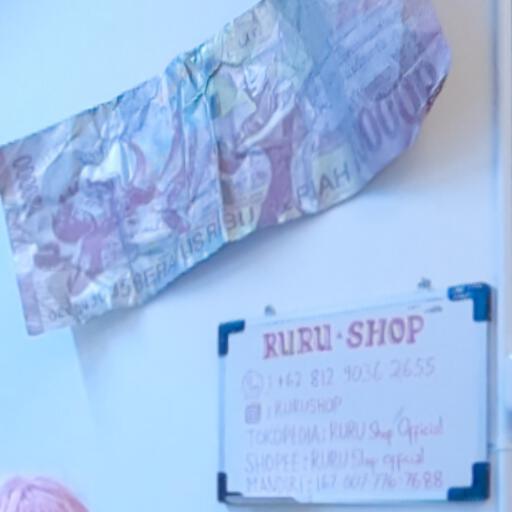 SERATUS RIBU RUPIAH
RURU·SHOP
: +62 812 9036 2655
: RURUSHOP
TOKOPEDIA : RURU Shop Official
SHOPEE : RURU Shop official
MANDIRI : 167 007 776 7688